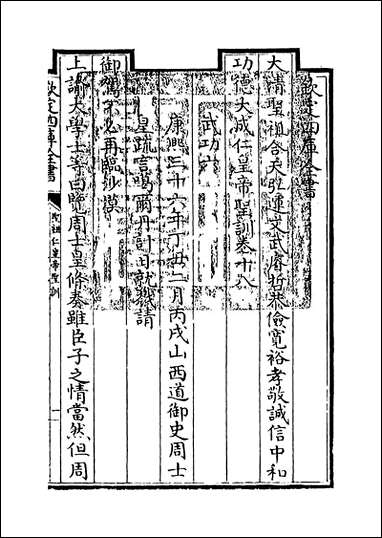 欽定四庫全書
大清聖祖合天弘運文武睿哲恭儉寬裕孝敬誠信中和
功德大成仁皇帝聖訓卷十八
武功六
康熙三十六年丁丑二月丙戌山西道御史周士
皇疏言噶爾丹計日就戮請
御駕不必再臨沙漠
上諭大學士等曰覽周士皇條奏雖臣子之情當然但周
欽定四庫全書
聖祖仁皇帝聖訓
一